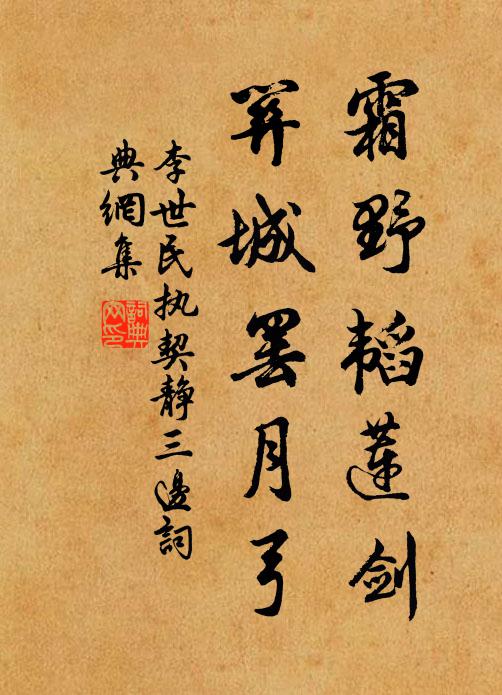 霜野韬蓮剑
關城罢月弓
李世民执契静三邊詞
典網集
詞典
网印